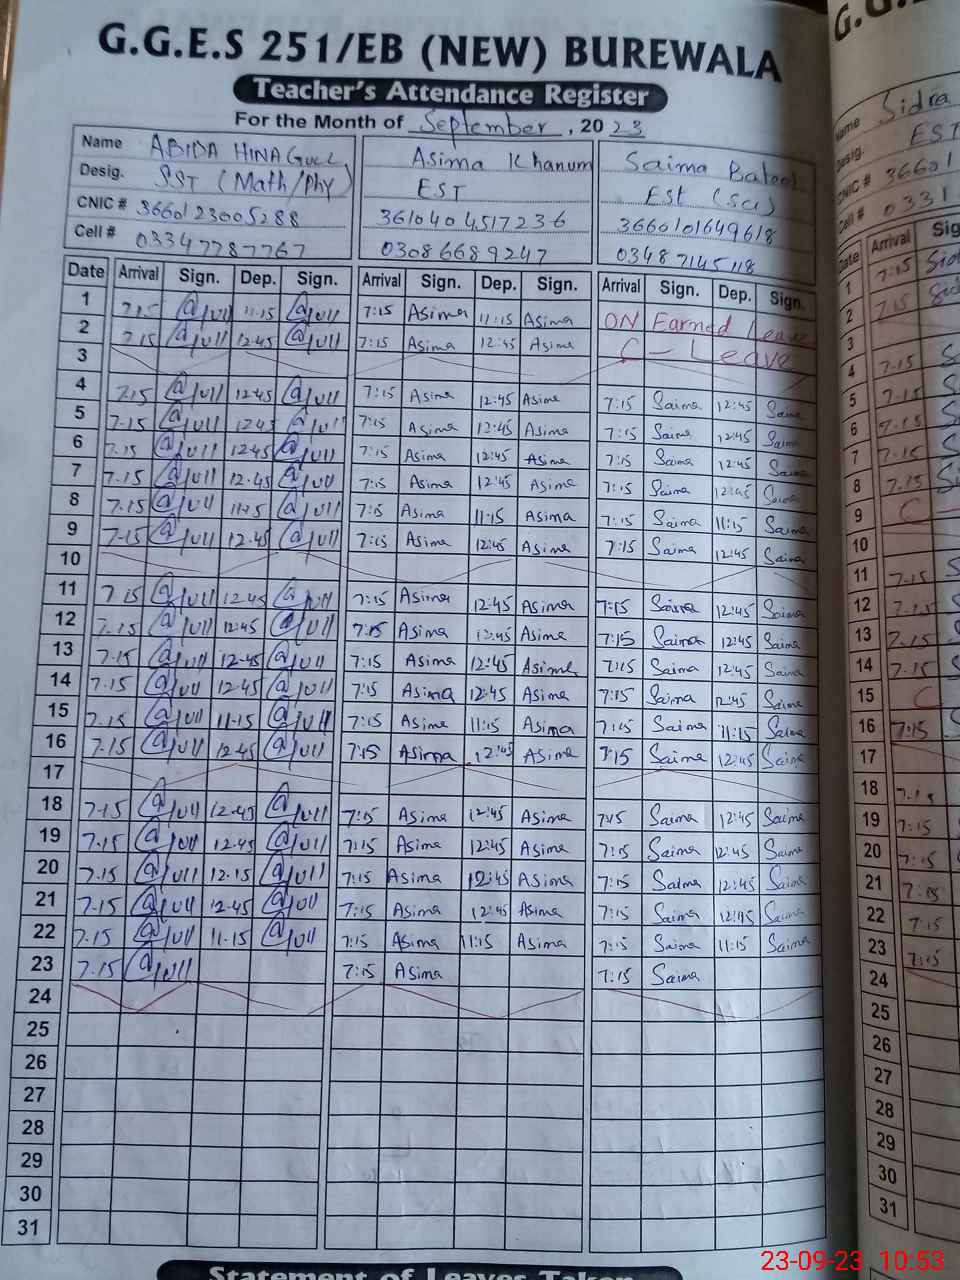 G.G.E.S 251/EB (NEW) BUREWALA
Teacher's Attendance Register
For the Month of September, 2023
Name ABIDA HINA GULL Asima Khanum Saima Batool
Desig. SST (Math/Phy) EST Est (Sci)
CNIC # 3660123005288 3610404517236 3660101649618
Cell # 03347787767 03086689247 03487145118
Date Arrival Sign. Dep. Sign. Arrival Sign. Dep. Sign. Arrival Sign. Dep. Sign.
1 7.15 @full 11.15 @full 7:15 Asima 11:15 Asima ON Earned Leave
2 7.15 @full 12.45 @full 7:15 Asima 12:45 Asima C-Leave
3
4 7.15 @full 12.45 @full 7:15 Asima 12:45 Asima 7:15 Saima 12:45 Saima
5 7.15 @full 12.45 @full 7:15 Asima 12:45 Asima 7:15 Saima 12:45 Saima
6 7.15 @full 12.45 @full 7:15 Asima 12:45 Asima 7:15 Saima 12:45 Saima
7 7.15 @full 12.45 @full 7:15 Asima 12:45 Asima 7:15 Saima 12:45 Saima
8 7.15 @full 11.15 @full 7:15 Asima 11:15 Asima 7:15 Saima 11:15 Saima
9 7.15 @full 12.45 @full 7:15 Asima 12:45 Asima 7:15 Saima 12:45 Saima
10
11 7.15 @full 12.45 @full 7:15 Asima 12:45 Asima 7:15 Saima 12:45 Saima
12 7.15 @full 12.45 @full 7:15 Asima 12:45 Asima 7:15 Saima 12:45 Saima
13 7.15 @full 12.45 @full 7:15 Asima 12:45 Asima 7:15 Saima 12:45 Saima
14 7.15 @full 12.45 @full 7:15 Asima 12:45 Asima 7:15 Saima 12:45 Saima
15 7.15 @full 11.15 @full 7:15 Asima 11:15 Asima 7:15 Saima 11:15 Saima
16 7.15 @full 12.45 @full 7:15 Asima 12:45 Asima 7:15 Saima 12:45 Saima
17
18 7.15 @full 12.45 @full 7:15 Asima 12:45 Asima 7:15 Saima 12:45 Saima
19 7.15 @full 12.45 @full 7:15 Asima 12:45 Asima 7:15 Saima 12:45 Saima
20 7.15 @full 12.15 @full 7:15 Asima 12:45 Asima 7:15 Saima 12:45 Saima
21 7.15 @full 12.45 @full 7:15 Asima 12:45 Asima 7:15 Saima 12:45 Saima
22 7.15 @full 11.15 @full 7:15 Asima 11:15 Asima 7:15 Saima 11:15 Saima
23 7.15 @full 7:15 Asima 7:15 Saima
24
25
26
27
28
29
30
31
Statement of Leaves Taken
G.G.
Name Sidra
Desig. EST
CNIC # 36601
Cell # 0331
Date Arrival Sig
1 7:15
2 7:15
3
4 7.15
5 7.15
6 7.15
7 7.15
8 7.15
9 C
10
11 7.15
12 7.15
13 7.15
14 7.15
15 C
16 7:15
17
18 7.15
19 7:15
20 7:15
21 7:15
22 7:15
23 7:15
24
25
26
27
28
29
30
31
23-09-23 10:53